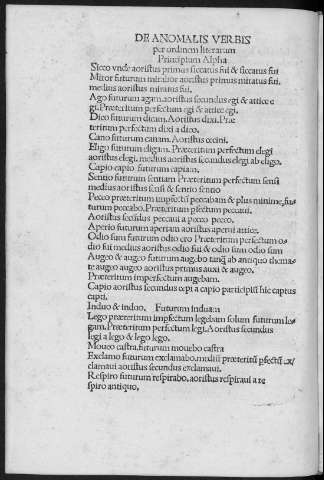 DE ANOMALIS VERBIS
per ordinem literarum
Principium Alpha
Sicco vnde aoristus primus siccatus fui & siccatus fui
Miror futurum mirabor aoristus primus miratus fui.
medius aoristus miratus fui.
Ago futurum agam. aoristus secundus egi & attice e
gi. Præteritum perfectum egi & attice egi.
Dico futurum dicam. Aoristus dixi. Præ
teritum perfectum dixi a dico.
Cano futurum canam. Aoristus cecini.
Eligo futurum eligam. Præteritum perfectum elegi
aoristus elegi. medius aoristus secundus elegi ab eligo.
Capio capio futurum capiam.
Sentio futurum sentiam Præteritum perfectum sensi
medius aoristus sensi & sentio sentio
Pecco præteritum impfectū peccabam & plus minime, fu
turum peccabo. Præteritum pfectum peccaui.
Aoristus secūdus peccaui a pecco pecco.
Aperio futurum aperiam aoristus aperui attice.
Odio sum futurum odio ero Præteritum perfectum o
dio fui medius aoristus odio fui & odio sum odio sum
Augeo & augeo futurum augebo tanq̄ ab antiquo thoma
te augeo augeo aoristus primus auxi & augeo.
Præteritum imperfectum augebam.
Capio aoristus secundus cepi a capio participiū hic captus
capti.
Induo & induo. Futurum induam
Lego præteritum impfectum legebam solum futurum le
gam. Præteritum perfectum legi. Aoristus secundus
legi a lego & lego lego.
Moueo castra. futurum mouebo castra
Exclamo futurum exclamabo. mediū præteritū pfectū ex
clamaui aoristus secundus exclamaui.
Respiro futurum respirabo. aoristus respiraui a re
spiro antiquo.